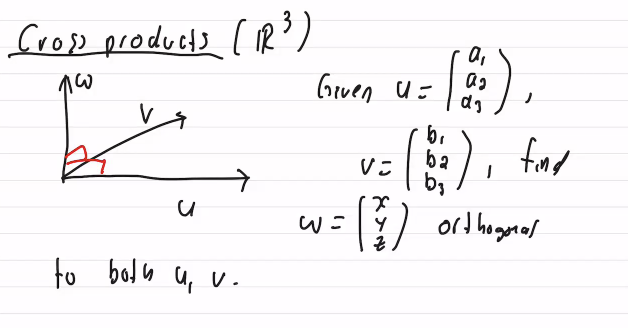 Cross products (ℝ³)
w
v
u
Given u = (a₁ a₂ a₃),
v = (b₁ b₂ b₃), find
w = (x y z) orthogonal
to both u, v.